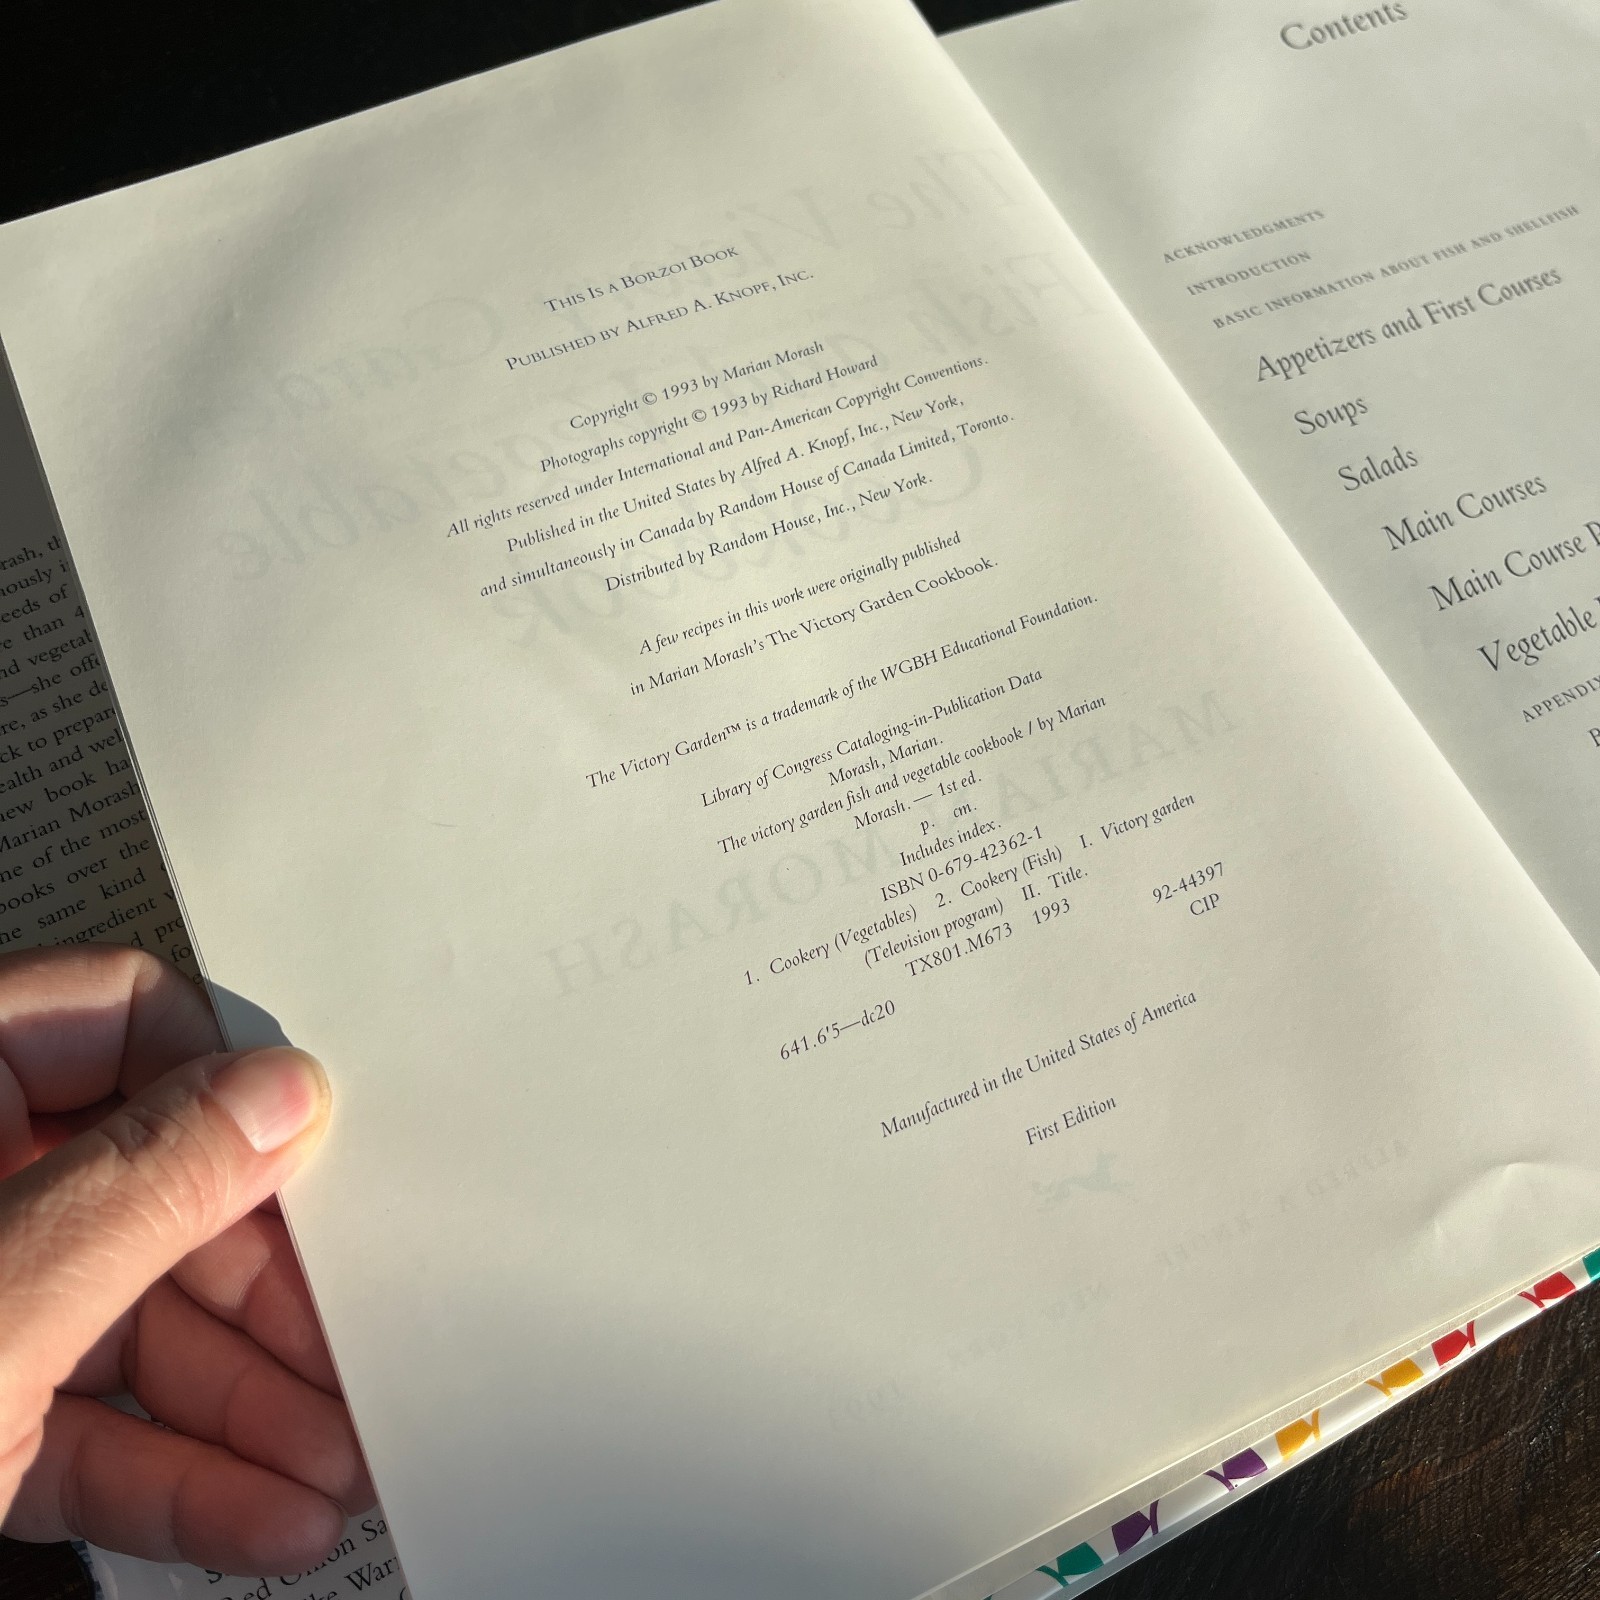 This Is a Borzoi Book
Published by Alfred A. Knopf, Inc.
Copyright © 1993 by Marian Morash
Photographs copyright © 1993 by Richard Howard
All rights reserved under International and Pan-American Copyright Conventions.
Published in the United States by Alfred A. Knopf, Inc., New York,
and simultaneously in Canada by Random House of Canada Limited, Toronto.
Distributed by Random House, Inc., New York.
A few recipes in this work were originally published
in Marian Morash's The Victory Garden Cookbook.
The Victory Garden™ is a trademark of the WGBH Educational Foundation.
Library of Congress Cataloging-in-Publication Data
Morash, Marian.
The victory garden fish and vegetable cookbook / by Marian
Morash. — 1st ed.
p. cm.
Includes index.
ISBN 0-679-42362-1
1. Cookery (Vegetables) 2. Cookery (Fish) I. Victory garden
(Television program) II. Title.
TX801.M673 1993
641.6'5—dc20 92-44397
CIP
Manufactured in the United States of America
First Edition
Contents
ACKNOWLEDGMENTS
INTRODUCTION
BASIC INFORMATION ABOUT FISH AND SHELLFISH
Appetizers and First Courses
Soups
Salads
Main Courses
Main Course P
Vegetable
APPENDIX
rash,
eeds of
re than 4
nd vegetab
s—she offe
re, as she de
ck to prepar
ealth and wel
new book ha
Marian Morash
ne of the most
books over the
he same kind
ingredient